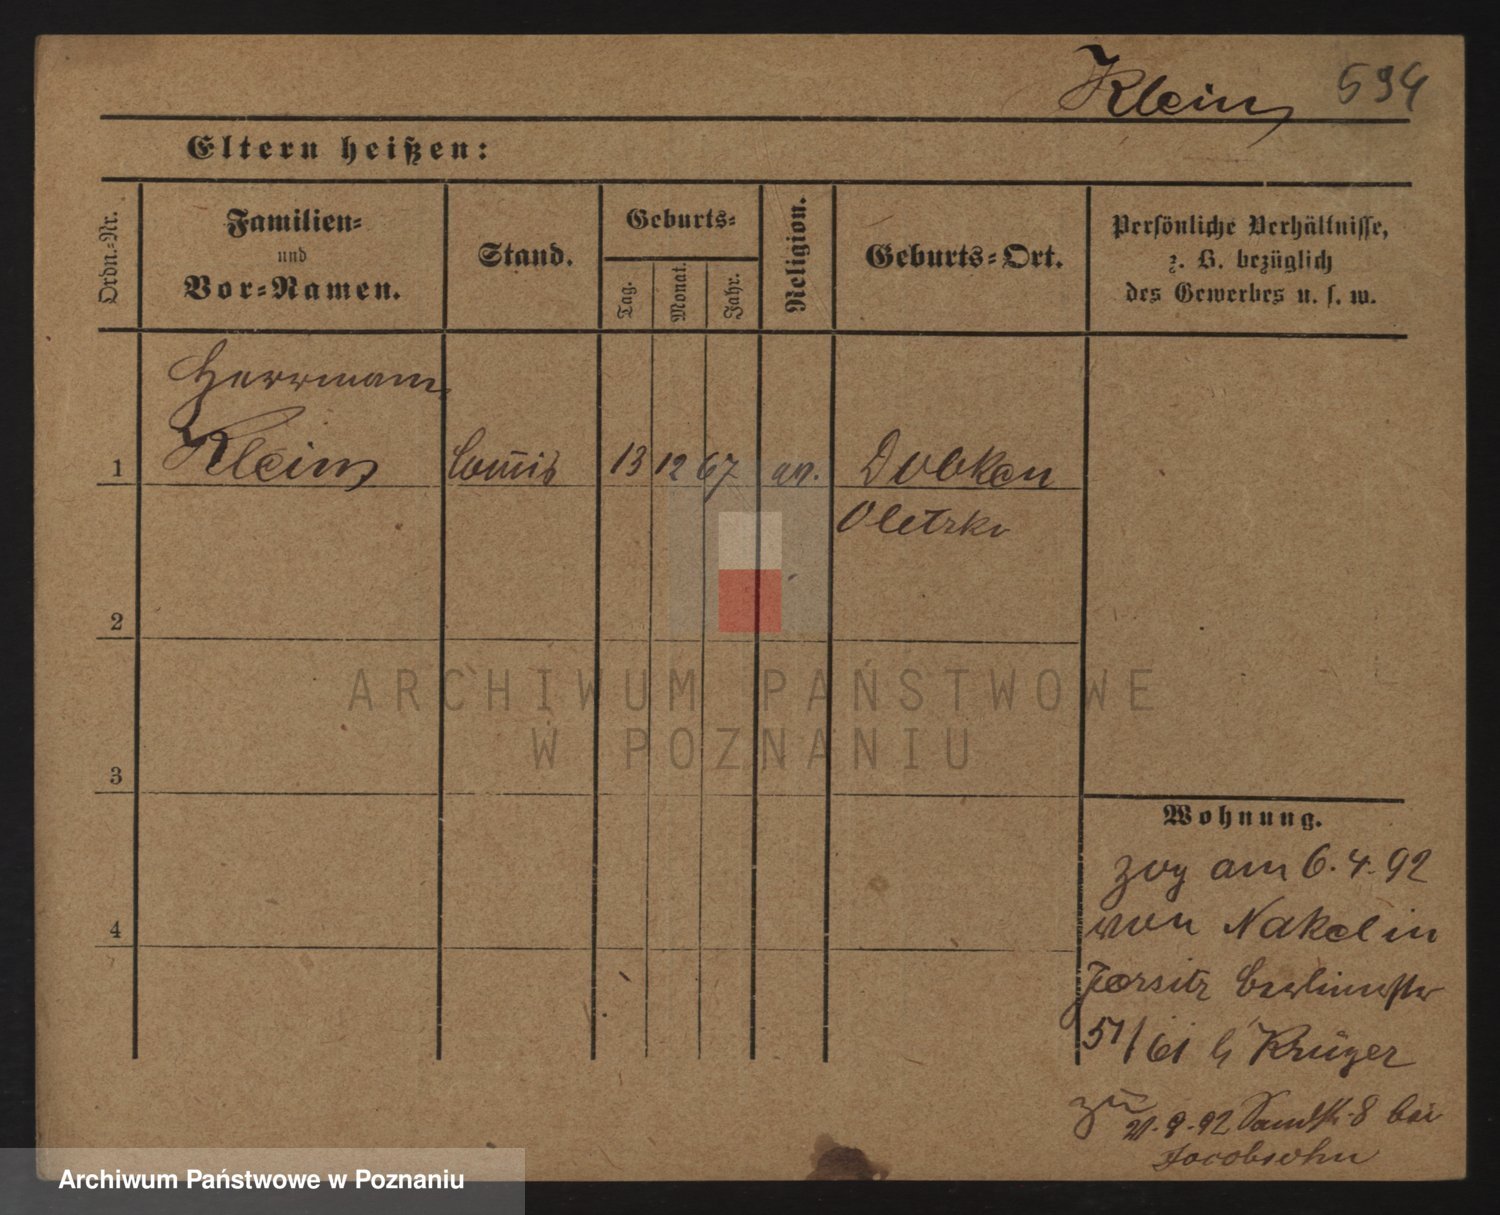 Klein 594
Eltern heißen:
Ordn.-Nr.
Familien-
und
Vor-Namen.
Stand.
Geburts-
Tag.
Monat.
Jahr.
Religion.
Geburts-Ort.
Persönliche Verhältnisse,
z. B. bezüglich
des Gewerbes u. s. w.
Herrmann
1 Klein Com̅is 13 12 67 ev. Dobken
Oletzko
2
3
4
Wohnung.
zog am 6.4.92
von Nakel in
Jersitz Berlinerstr
51/61 b Krüger
zu
21.9.92 Sandstr. 8 bei
Jacobsohn
ARCHIWUM PAŃSTWOWE
W POZNANIU
Archiwum Państwowe w Poznaniu